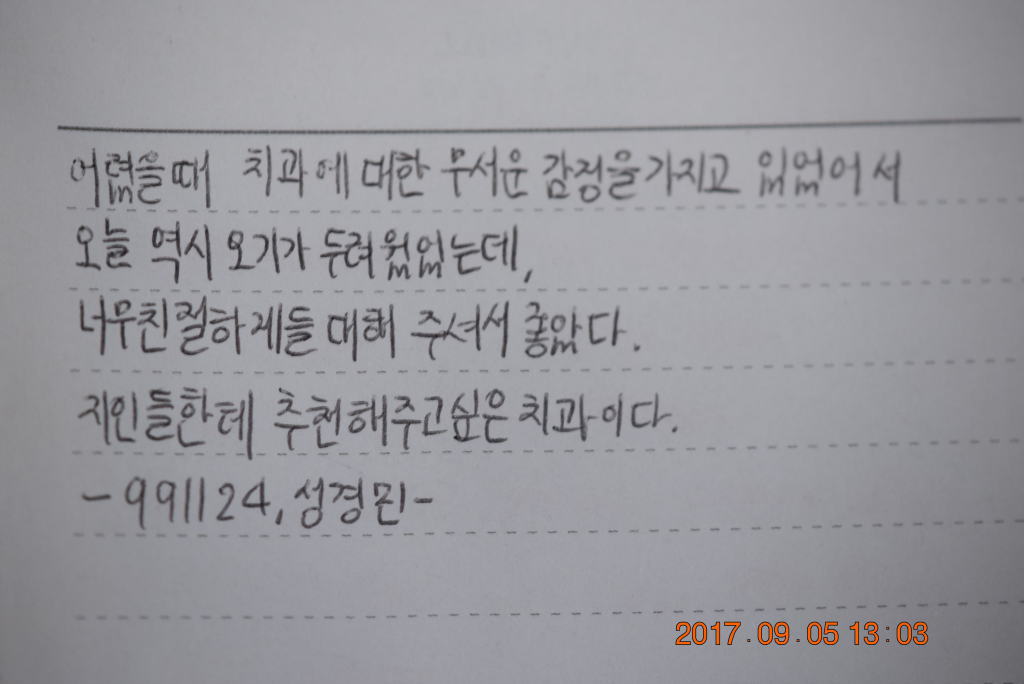 어렸을때 치과에 대한 무서운 감정을가지고 있었어서
오늘 역시 오기가 두려웠었는데,
너무친절하게들 대해 주셔서 좋았다.
지인들한테 추천해주고싶은 치과이다.
-991124, 성경민-
2017.09.05 13:03